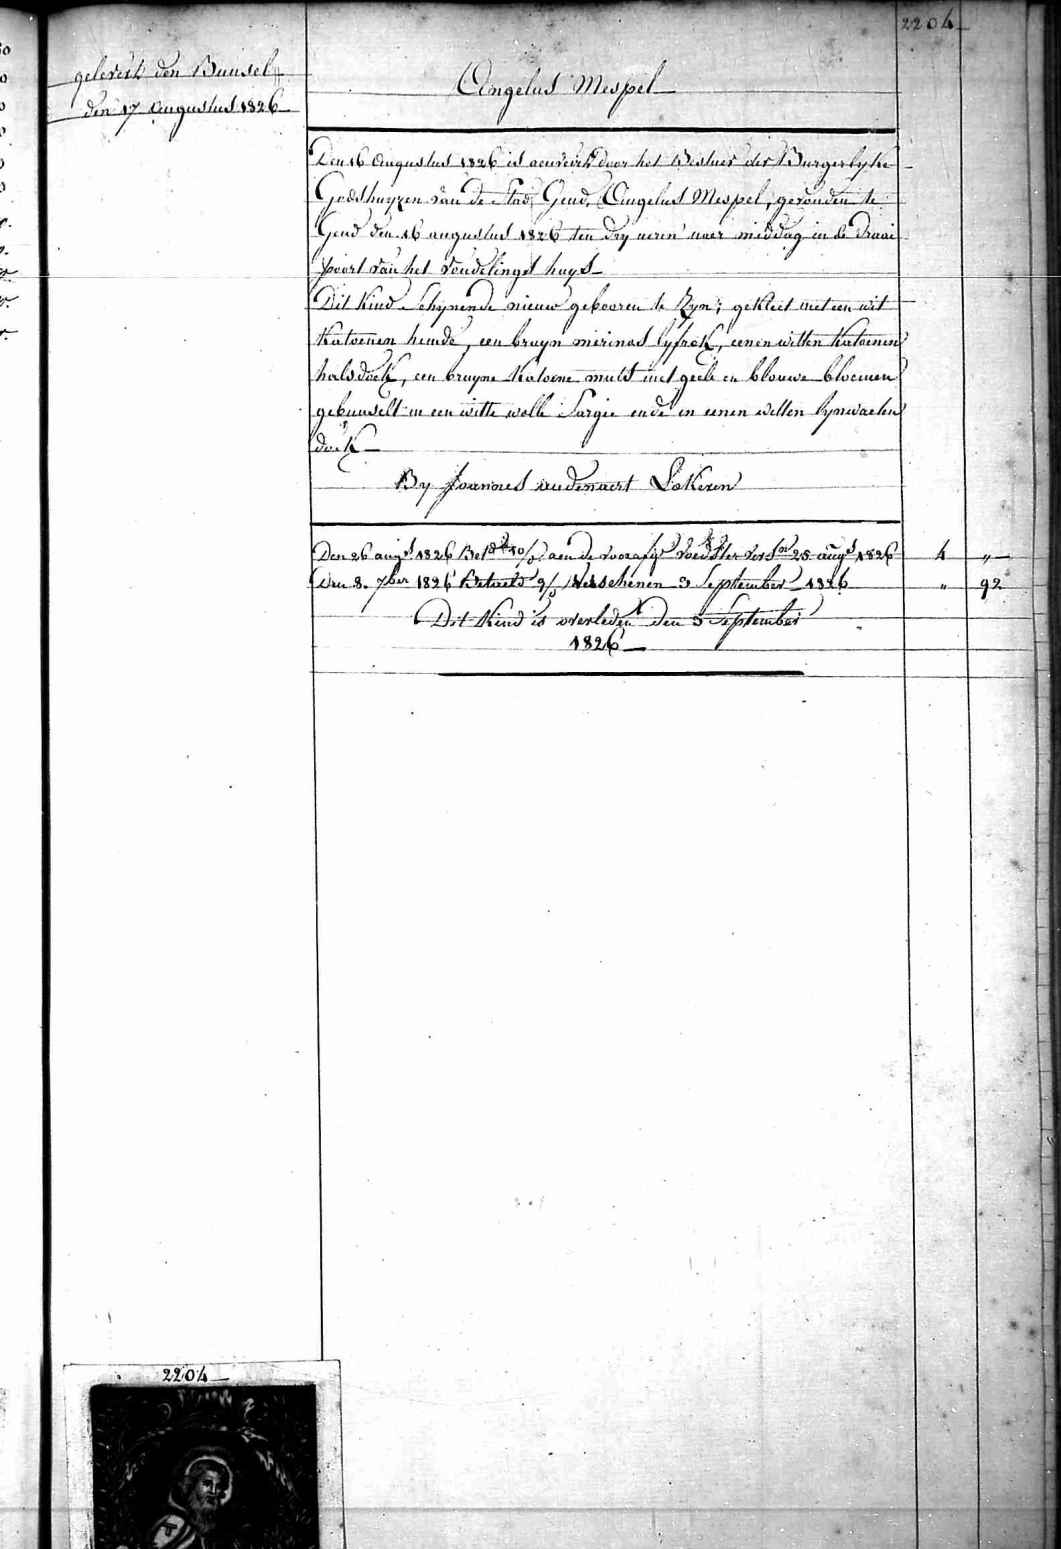 2204
gelevert den Bunsel
den 17 augustus 1826
Angelus Mespel
Den 16 Augustus 1826 is aenveirt door het Bestuer der Burgerlyke
Godshuyzen van de Stad Gend, Angelus Mespel, gevonden te
Gend den 16 augustus 1826 ten dry ueren naer middag in de Draai
poort van het vondelingshuys
Dit Kind Schynende nieuw gebooren te Zyn; gekleet met een wit
Katoenen hemde, een bruyn mirinos lyfrok, eenen witten Katoenen
halsdoek, een bruyne Katoene muts met geele en blouwe bloemen
gebunselt in een witte wolle Sargie ende in eenen witten lynwaeten
doek
By Joannes audenaert Lokeren
Den 26 augt 1826 Betd 10/d aen de voorafge voedster versn 25 augt 1826 4 "
Den 8. 7ber 1826 betaelt 9/d Verschenen 3 September 1826 " 92
Dit Kind is overleden den 3 September
1826
2204